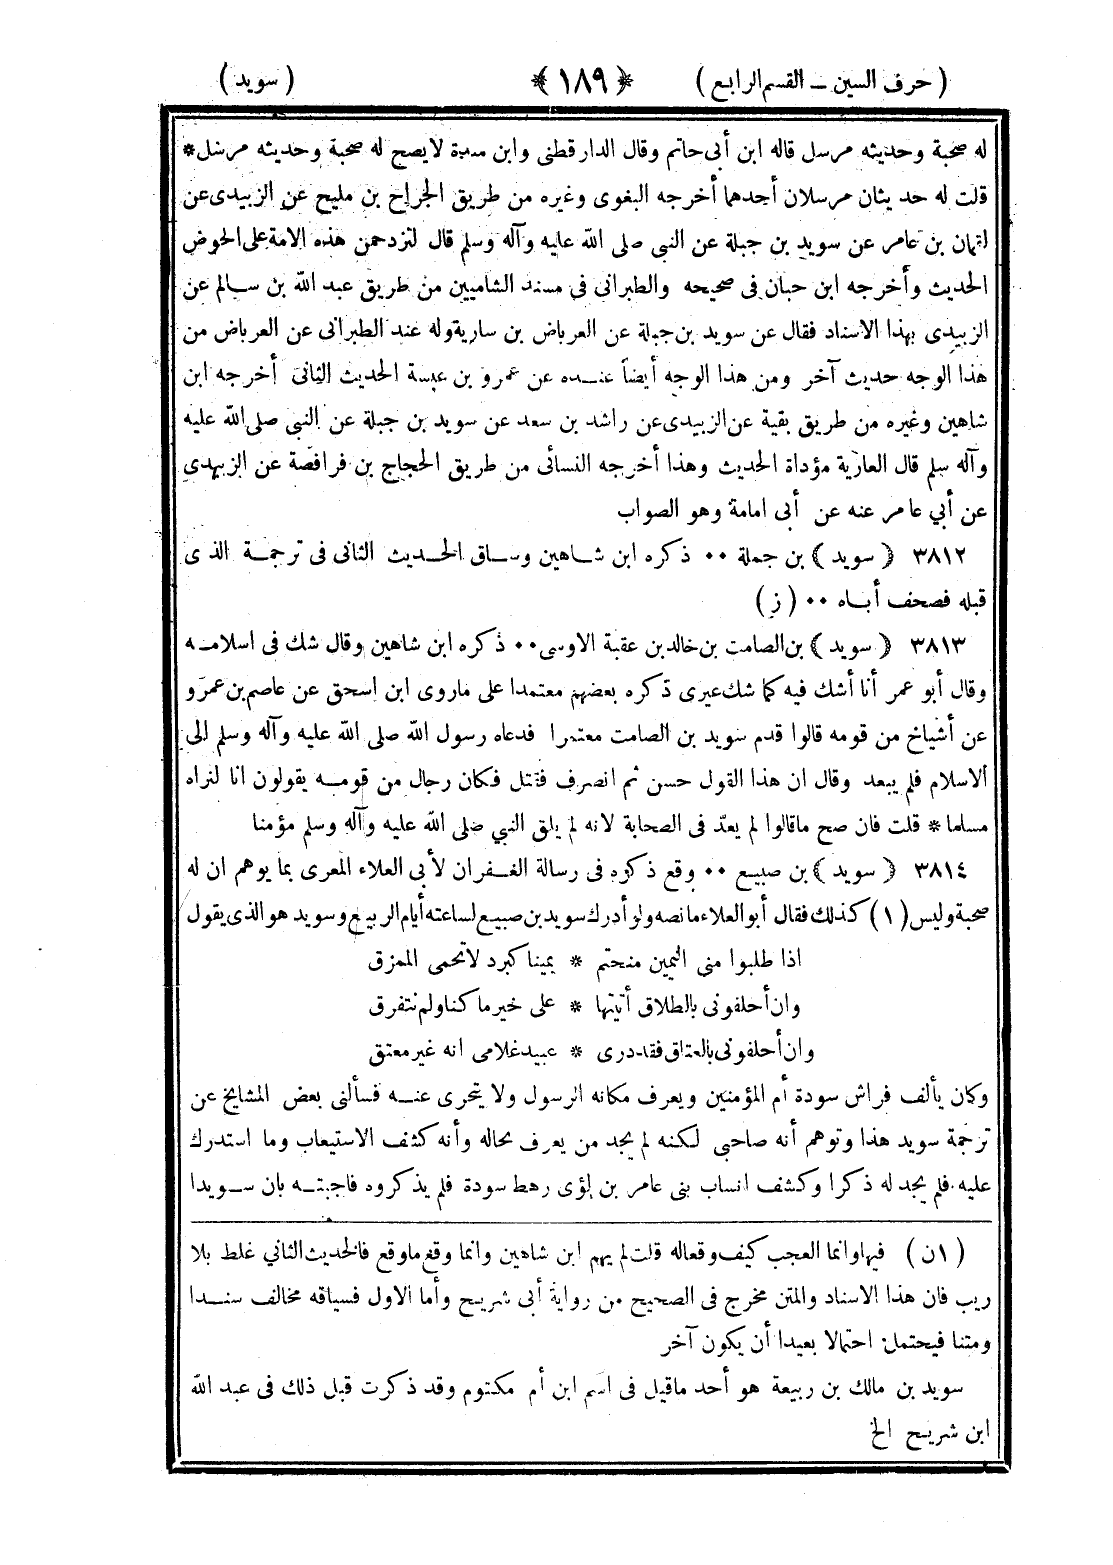 ( حرف السين ــ القسم الرابع ) ﴿ ١٨٩ ﴾ ( سويد )
له صحبة وحديثه مرسل قاله ابن أبى حاتم وقال الدار قطنى وابن مندة لا يصح له صحبة وحديثه مرسل *
قلت له حديثان مرسلان أحدهما أخرجه البغوى وغيره من طريق الجراح بن مليح عن الزبيدى عن
لقمان بن عامر عن سويد بن جبلة عن النبى صلى الله عليه وآله وسلم قال لتزدحمن هذه الامة على الحوض
الحديث وأخرجه ابن حبان فى صحيحه والطبرانى فى مسند الشاميين من طريق عبد الله بن سالم عن
الزبيدى بهذا الاسناد فقال عن سويد بن جبلة عن العرباض بن سارية وله عند الطبرانى عن العرباض من
هذا الوجه حديث آخر ومن هذا الوجه أيضاً عنده عن عمرو بن عبسة الحديث الثانى أخرجه ابن
شاهين وغيره من طريق بقية عن الزبيدى عن راشد بن سعد عن سويد بن جبلة عن النبى صلى الله عليه
وآله سلم قال العارية مؤداة الحديث وهذا أخرجه النسائى من طريق الحجاج بن فرافصة عن الزبيدى
عن أبي عامر عنه عن أبى امامة وهو الصواب
٣٨١٢ ﴿ سويد ﴾ بن جملة ٠٠ ذكره ابن شاهين وساق الحديث الثانى فى ترجمة الذى
قبله فصحف أباه ٠٠ ( ز )
٣٨١٣ ﴿ سويد ﴾ بن الصامت بن خالد بن عقبة الاوسى ٠٠ ذكره ابن شاهين وقال شك فى اسلامه
وقال أبو عمر أنا أشك فيه كما شك غيرى ذكره بعضهم معتمدا على ماروى ابن اسحق عن عاصم بن عمرو
عن أشياخ من قومه قالوا قدم سويد بن الصامت معتمرا فدعاه رسول الله صلى الله عليه وآله وسلم الى
الاسلام فلم يبعد وقال ان هذا القول حسن ثم انصرف فقتل فكان رجال من قومه يقولون انا لنراه
مسلما * قلت فان صح ماقالوا لم يعدّ فى الصحابة لانه لم يلق النبي صلى الله عليه وآله وسلم مؤمنا
٣٨١٤ ﴿ سويد ﴾ بن صبيع ٠٠ وقع ذكره فى رسالة الغفران لأبى العلاء المعرى بما يوهم ان له
صحبة وليس (١) كذلك فقال أبو العلاء مانصه ولو أدرك سويد بن صبيع لساعته أيام الربيع وسويد هو الذى يقول
اذا طلبوا منى اليمين منحتم * يمينا كبرد لاتحمى الممزق
وان أحلفونى بالطلاق أتيتها * على خير ما كنا ولم نتفرق
وان أحلفونى بالعتاق فقد درى * عبيد غلامى انه غير معتق
وكان يألف فراش سودة أم المؤمنين ويعرف مكانه الرسول ولا يتحرى عنه فسألنى بعض المشايخ عن
ترجمة سويد هذا وتوهم أنه صاحبى لكنه لم يجد من يعرف بحاله وأنه كشف الاستيعاب وما استدرك
عليه فلم يجد له ذكرا وكشف انساب بنى عامر بن لؤى رهط سودة فلم يذكروه فاجبته بان سويدا
( ١ن ) فيها وانما العجب كيف وقع اله قلت لم يهم ابن شاهين وانما وقع ماوقع فالحديث الثاني غلط بلا
ريب فان هذا الاسناد والمتن مخرج فى الصحيح من رواية أبى شريح وأما الاول فسياقه مخالف سندا
ومتنا فيحتمل احتمالا بعيدا أن يكون آخر
سويد بن مالك بن ربيعة هو أحد ماقيل فى اسم ابن أم مكتوم وقد ذكرت قبل ذلك فى عبد الله
ابن شريح الخ